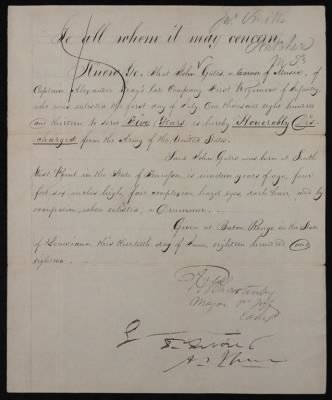 Jas Smith
To all whom it may concern
Natchez
Know Ye, that John Gates, a of Music, of
Captain Alexander Gray's late Company First Regiment of Infantry
who was enlisted the first day of July One thousand eight hundred
and thirteen to serve Five Years is hereby Honorably Dis
charged from the Army of the United States.
Said John Gates was born at South
West Point in the State of is nineteen years of age, four
feet, six inches high, fair complexion hazel eyes, dark hair, and by
when enlisted, a Drummer.
Given at Baton Rouge in the State
of Louisiana this thirtieth day of June eighteen hundred and
eighteen
Major 1st Inf